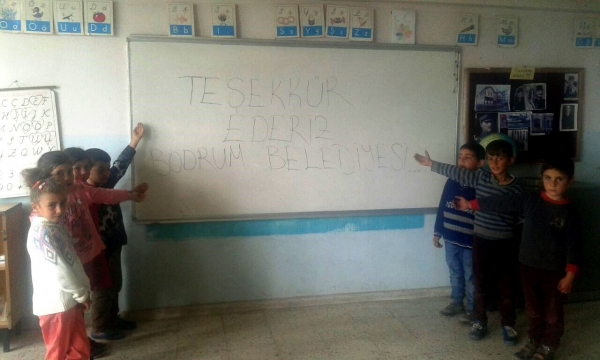 TEŞEKKÜR
EDERİZ
BODRUM BELEDİYESİ